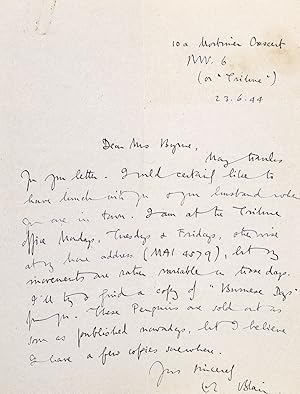 10a Mortimer Crescent
NW. 6
(or "Tribune")
23.6.44
Dear Mrs Byrne,
Many thanks
for your letter. I would certainly like to
have lunch with you & your husband when
you are in town. I am at the Tribune
office Mondays, Tuesdays & Fridays, otherwise
at my home address (MAI 4579), but my
movements are rather variable on those days.
I'll try & find a copy of "Burmese Days"
for you. These Penguins are sold out as
soon as published nowadays, but I believe
I have a few copies somewhere.
Yours sincerely
Blair